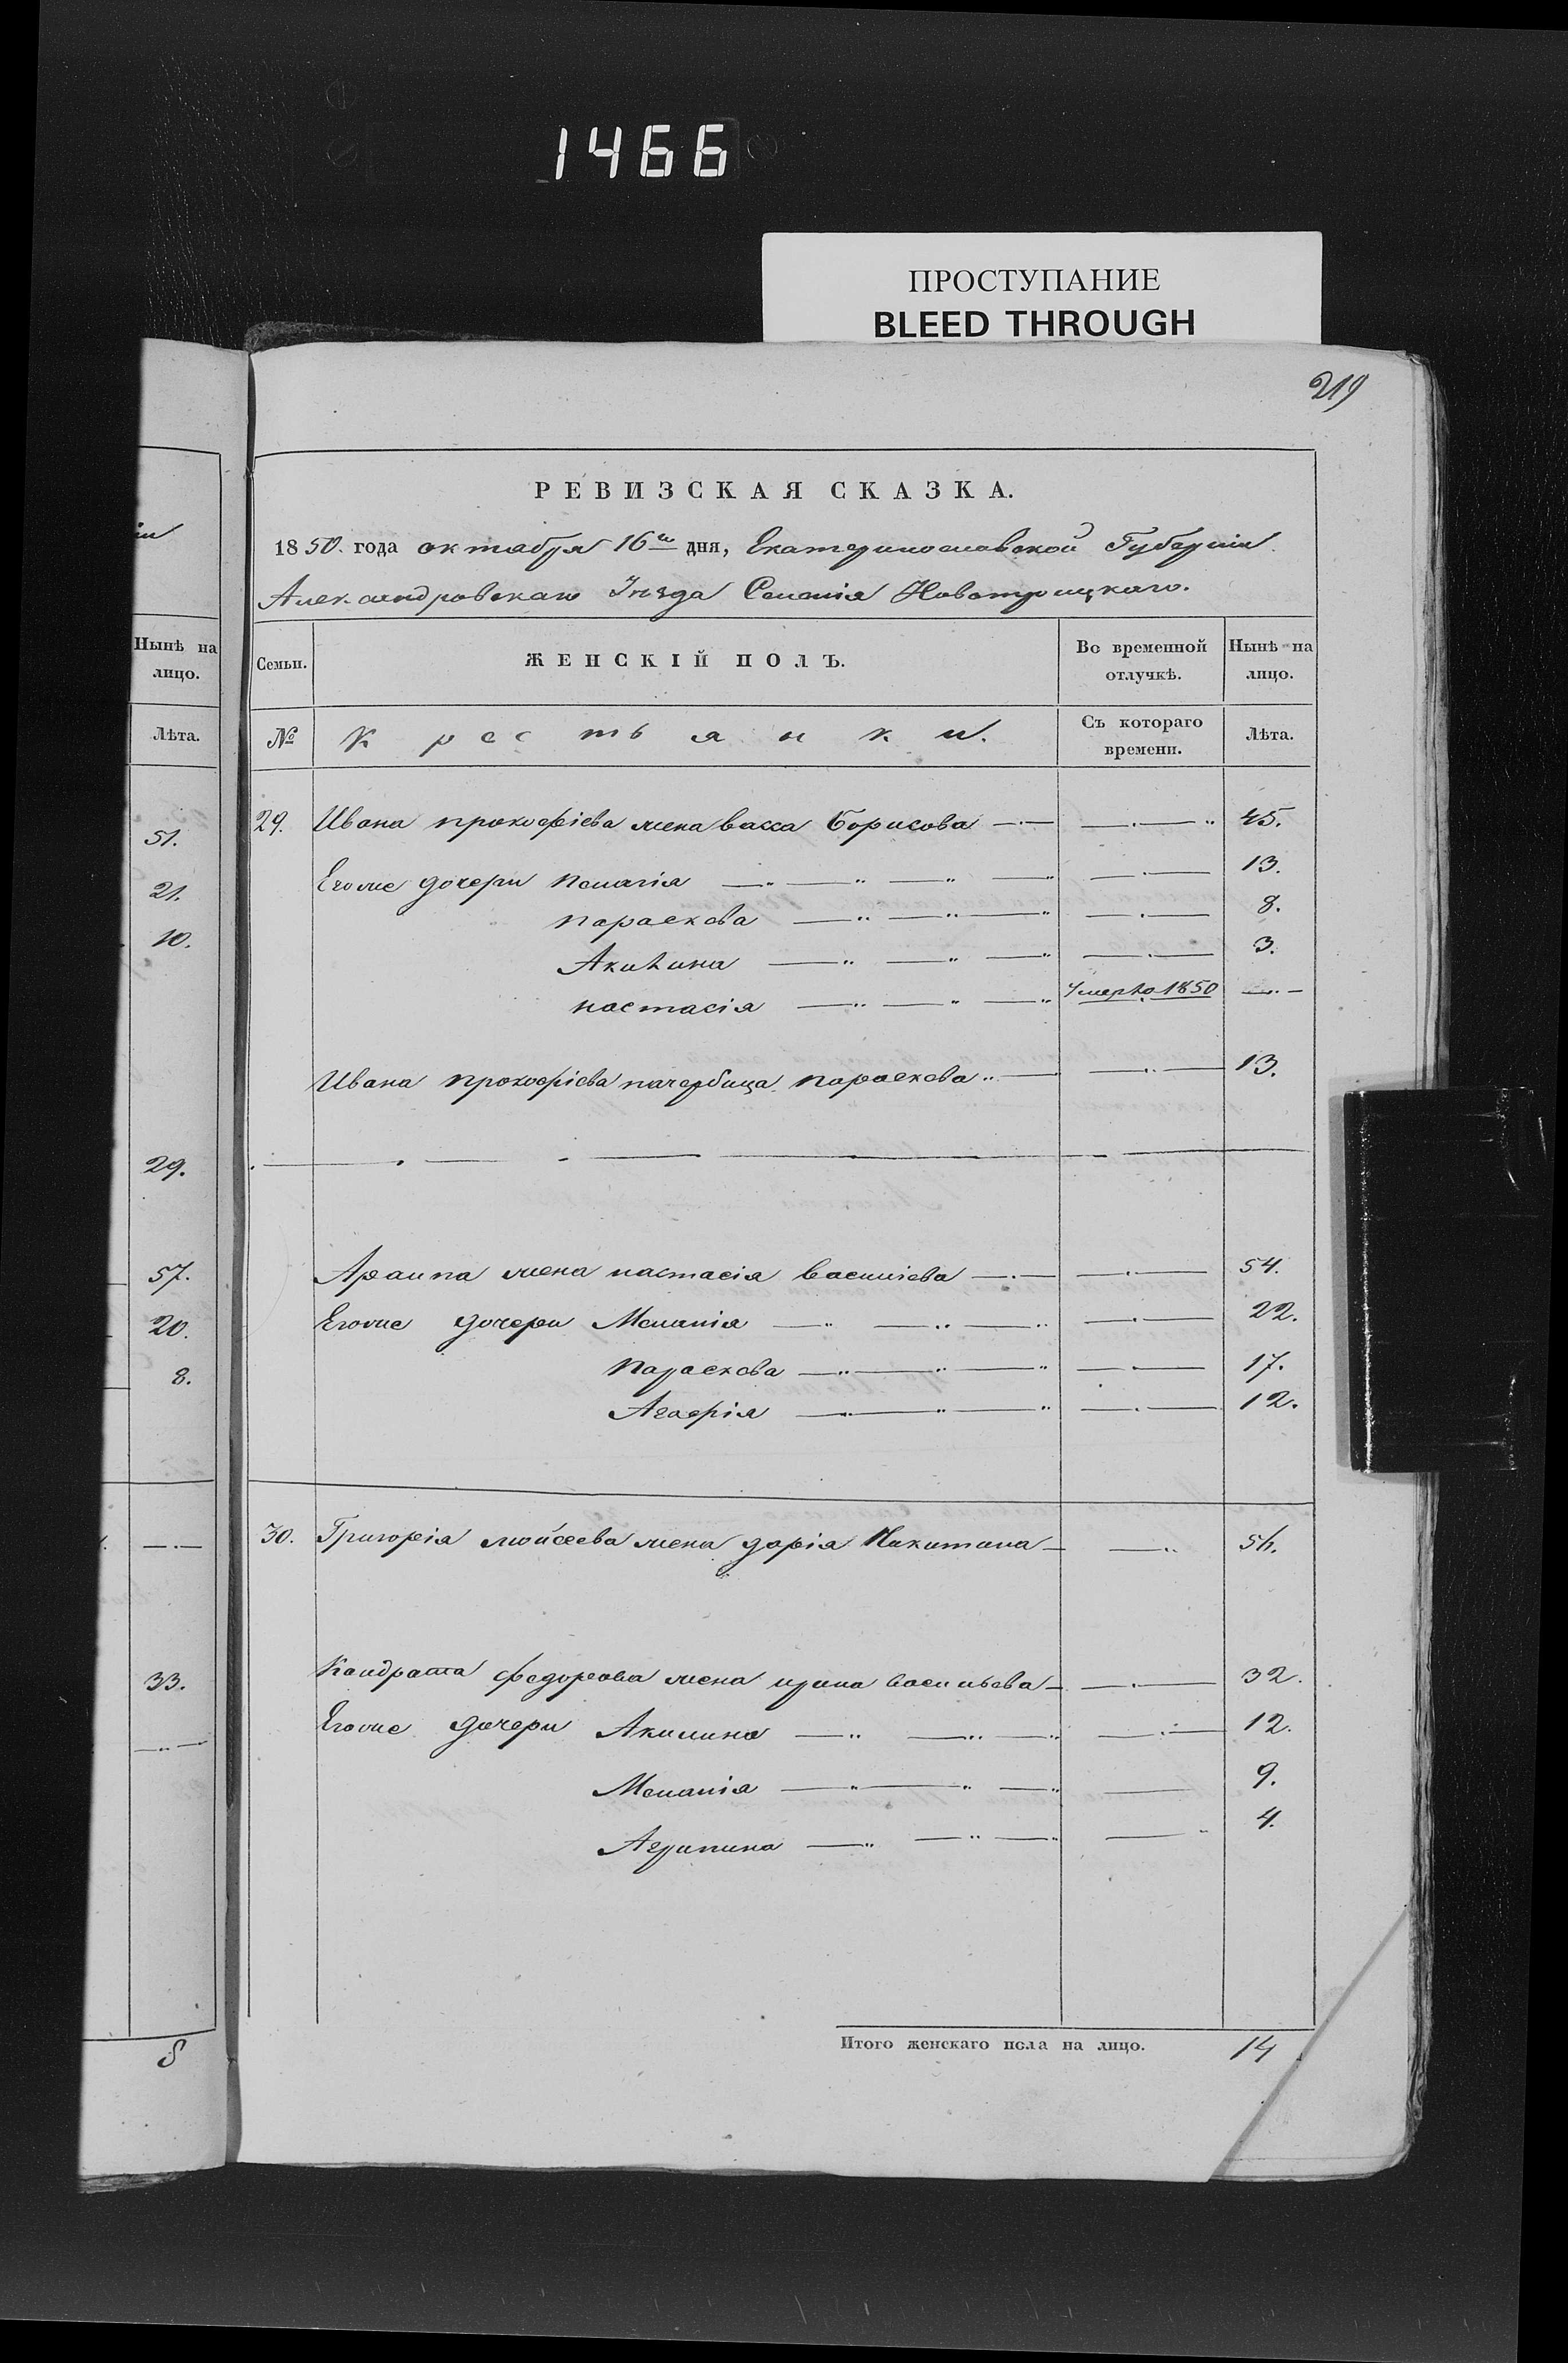 1466
ПРОСТУПАНИЕ
BLEED THROUGH
219
РЕВИЗСКАЯ СКАЗКА.
1850. года октября 16го дня, Екатеринославской Губерніи
Александровскаго Уѣзда Селенія Новотроицкаго.
Нынѣ на лицо.
Лѣта.
51.
21.
10.
29.
57.
20.
8.
33.
8
Семьи. ЖЕНСКІЙ ПОЛЪ. Во временной отлучкѣ. Нынѣ на лицо.
№ Крестьянки. Съ котораго времени. Лѣта.
29. Ивана прокофіева жена васса Борисова 45.
Егоже дочери Пелагія 13.
параскова 8.
Акилина 3.
настасія Умерла 1850
Ивана прокофіева пачерьица параскева 13.
жена настасія василіева 54.
Егоже дочери Меланія 22.
Параскова 17.
Агафія 12.
30. Григорія мойсеева жена дарія Никитина 56.
Кондрата федорова жена ирина васильева 32.
Егоже дочери Акилина 12.
Меланія 9.
Агрипина 4.
Итого женскаго пола на лицо. 14